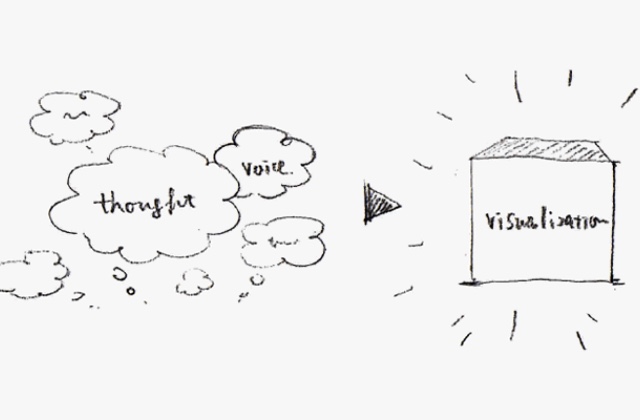 thought
voice.
visualization